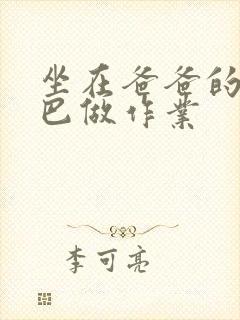 坐在爸爸的
巴做作业
李可亮